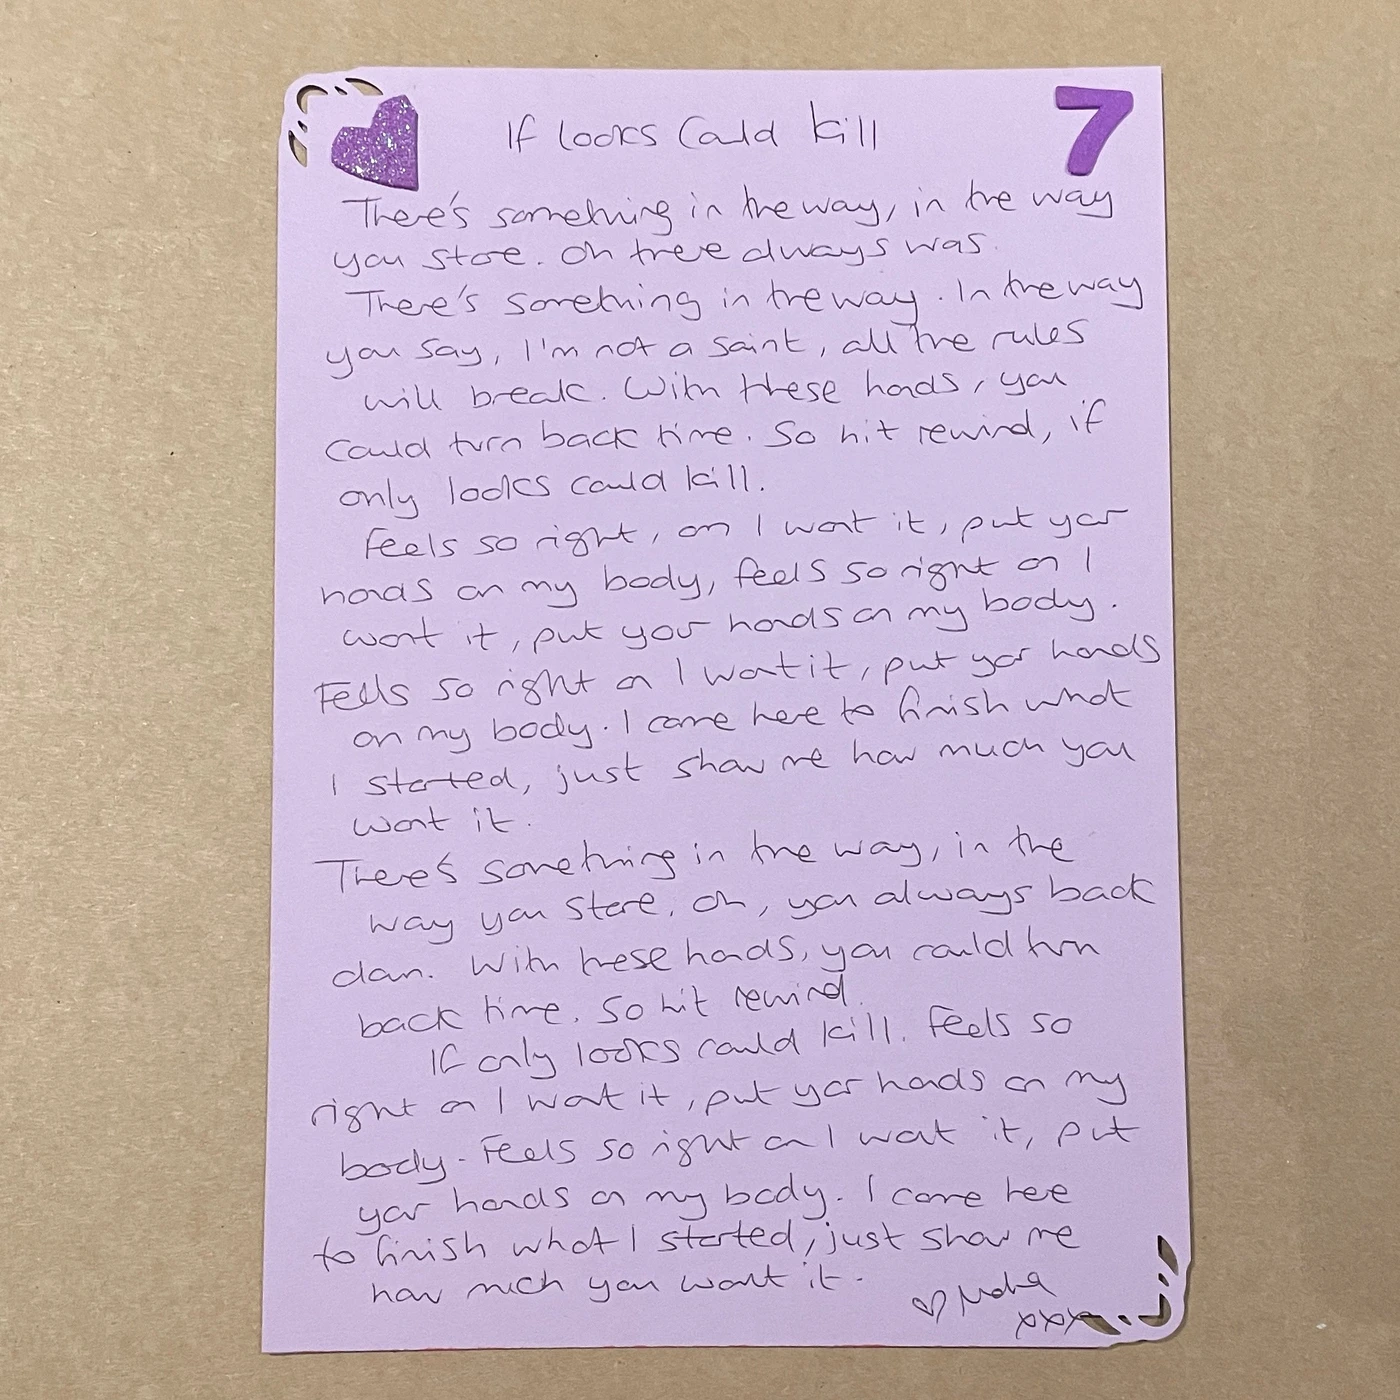 7
If looks Could kill
There's something in the way, in the way
you stare. Oh there always was.
There's something in the way. In the way
you say, I'm not a saint, all the rules
will break. With these hands, you
could turn back time. So hit rewind, if
only looks could kill.
Feels so right, on I want it, put your
hands on my body, feels so right on I
want it, put your hands on my body.
Feels so right on I want it, put your hands
on my body. I came here to finish what
I started, just show me how much you
want it.
There's something in the way, in the
way you stare. Oh, you always back
down. With these hands, you could turn
back time. So hit rewind.
If only looks could kill. Feels so
right on I want it, put your hands on my
body. Feels so right on I want it, put
your hands on my body. I came here
to finish what I started, just show me
how much you want it.
xxx